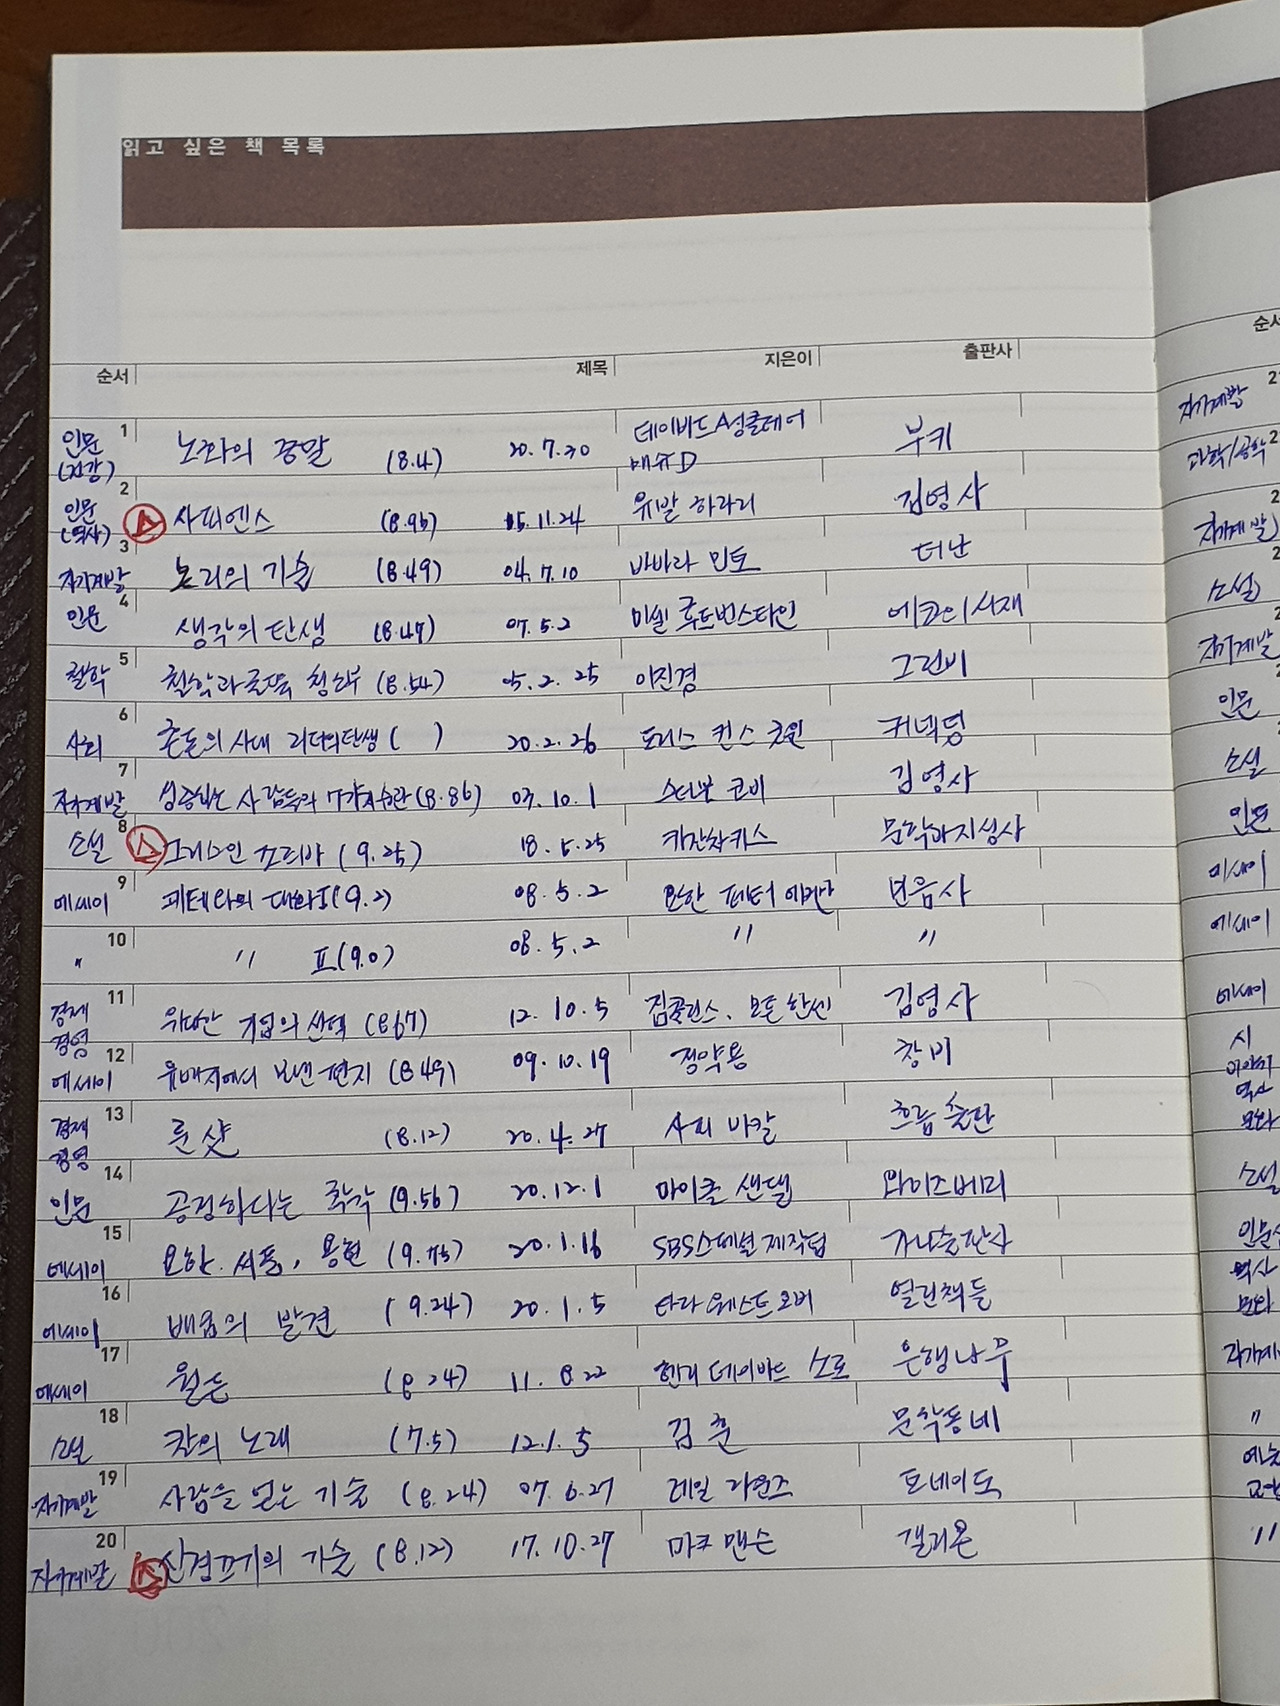 읽고 싶은 책 목록
순서 제목 지은이 출판사
1 인문 (건강) 노화의 종말 (8.4) 20.7.30 데이비드 A 싱클레어 매슈 D 부키
2 인문 (역사) 사피엔스 (8.95) 15.11.24 유발 하라리 김영사
3 자기계발 논리의 기술 (8.49) 04.7.10 바바라 민토 더난
4 인문 생각의 탄생 (8.47) 07.5.2 미셸 루트번스타인 에코의 서재
5 철학 철학과 굴뚝 청소부 (8.54) 05.2.25 이진경 그린비
6 사회 혼돈의 시대 리더의 탄생 ( ) 20.2.26 도리스 컨스 굿윈 커넥팅
7 자기계발 성공하는 사람들의 7가지 습관 (8.86) 03.10.1 스티븐 코비 김영사
8 소설 그리스인 조르바 (9.25) 18.5.25 카잔차키스 문학과지성사
9 에세이 괴테와의 대화 I (9.2) 08.5.2 요한 페터 에커만 민음사
10 〃 〃 II (9.0) 08.5.2 〃 〃
11 경제 경영 위대한 기업의 선택 (8.67) 12.10.5 짐콜린스, 모튼 한센 김영사
12 에세이 유배지에서 보낸 편지 (8.49) 09.10.19 정약용 창비
13 경제 경영 룬샷 (8.12) 20.4.27 사피 바칼 흐름출판
14 인문 공정하다는 착각 (9.56) 20.12.1 마이클 샌델 와이즈베리
15 에세이 요한, 씨돌, 용현 (9.75) 20.1.16 SBS스페셜 제작팀 가나출판사
16 에세이 배움의 발견 (9.24) 20.1.5 타라 웨스트오버 열린책들
17 에세이 월든 (8.24) 11.8.22 헨리 데이비드 소로 은행나무
18 소설 칼의 노래 (7.5) 12.1.5 김훈 문학동네
19 자기계발 사람을 얻는 기술 (8.24) 07.6.27 레일 라운즈 토네이도
20 자기계발 신경끄기의 기술 (8.12) 17.10.27 마크 맨슨 갤리온
순서
자기계발
과학/공학
자기계발
소설
자기계발
인문
소설
인문
에세이
에세이
에세이
시
역사
문화
소설
역사
문화
자기계
〃
〃